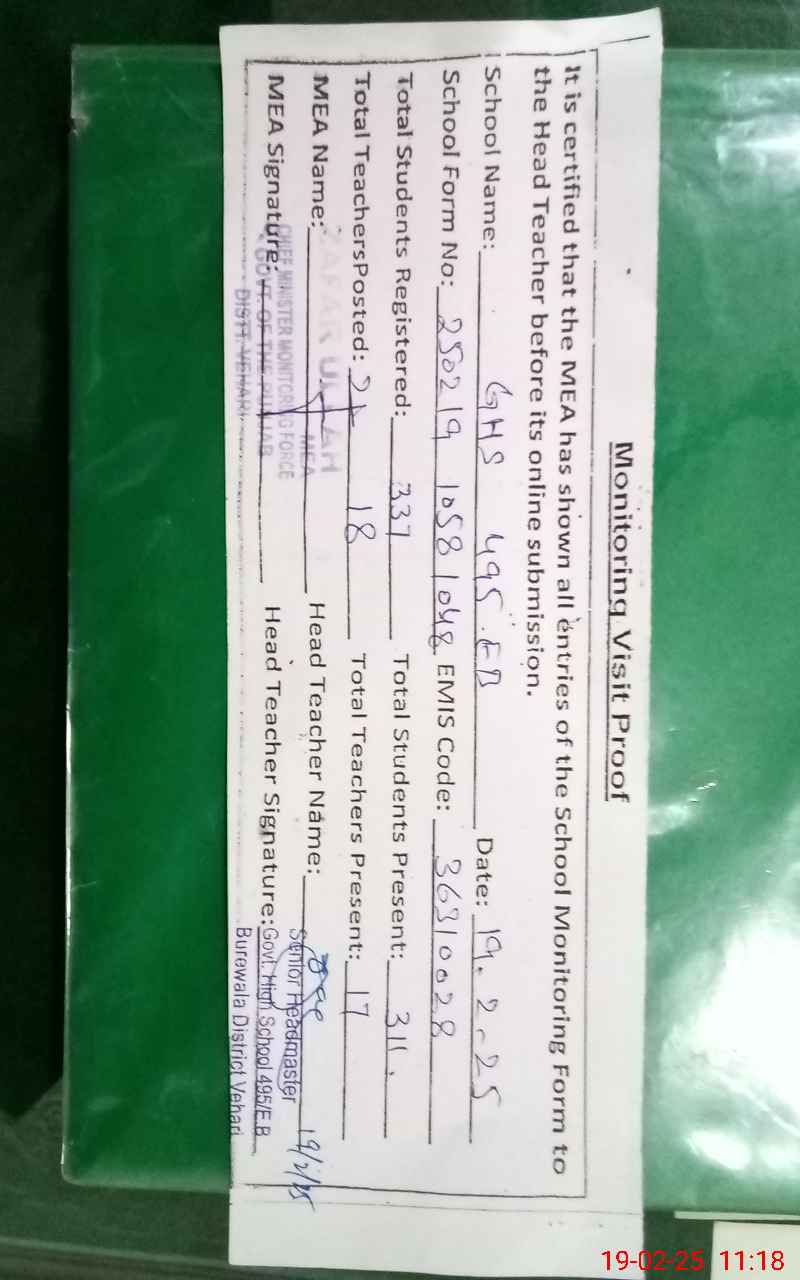 Monitoring Visit Proof
It is certified that the MEA has shown all entries of the School Monitoring Form to
the Head Teacher before its online submission.
School Name: GHS 495.EB Date: 19.2-25
School Form No: 250219 10581048 EMIS Code: 36310028
Total Students Registered: 337 Total Students Present: 311.
Total TeachersPosted: 18 Total Teachers Present: 17
MEA Name: ZAFAR ULLAH Head Teacher Name:
MEA
MEA Signature: Head Teacher Signature:
CHIEF MINISTER MONITORING FORCE
GOVT. OF THE PUNJAB
DISTT. VEHARI
Senior Headmaster
Govt. High School 495/E.B
Burewala District Vehari
19/2/25
19-02-25 11:18